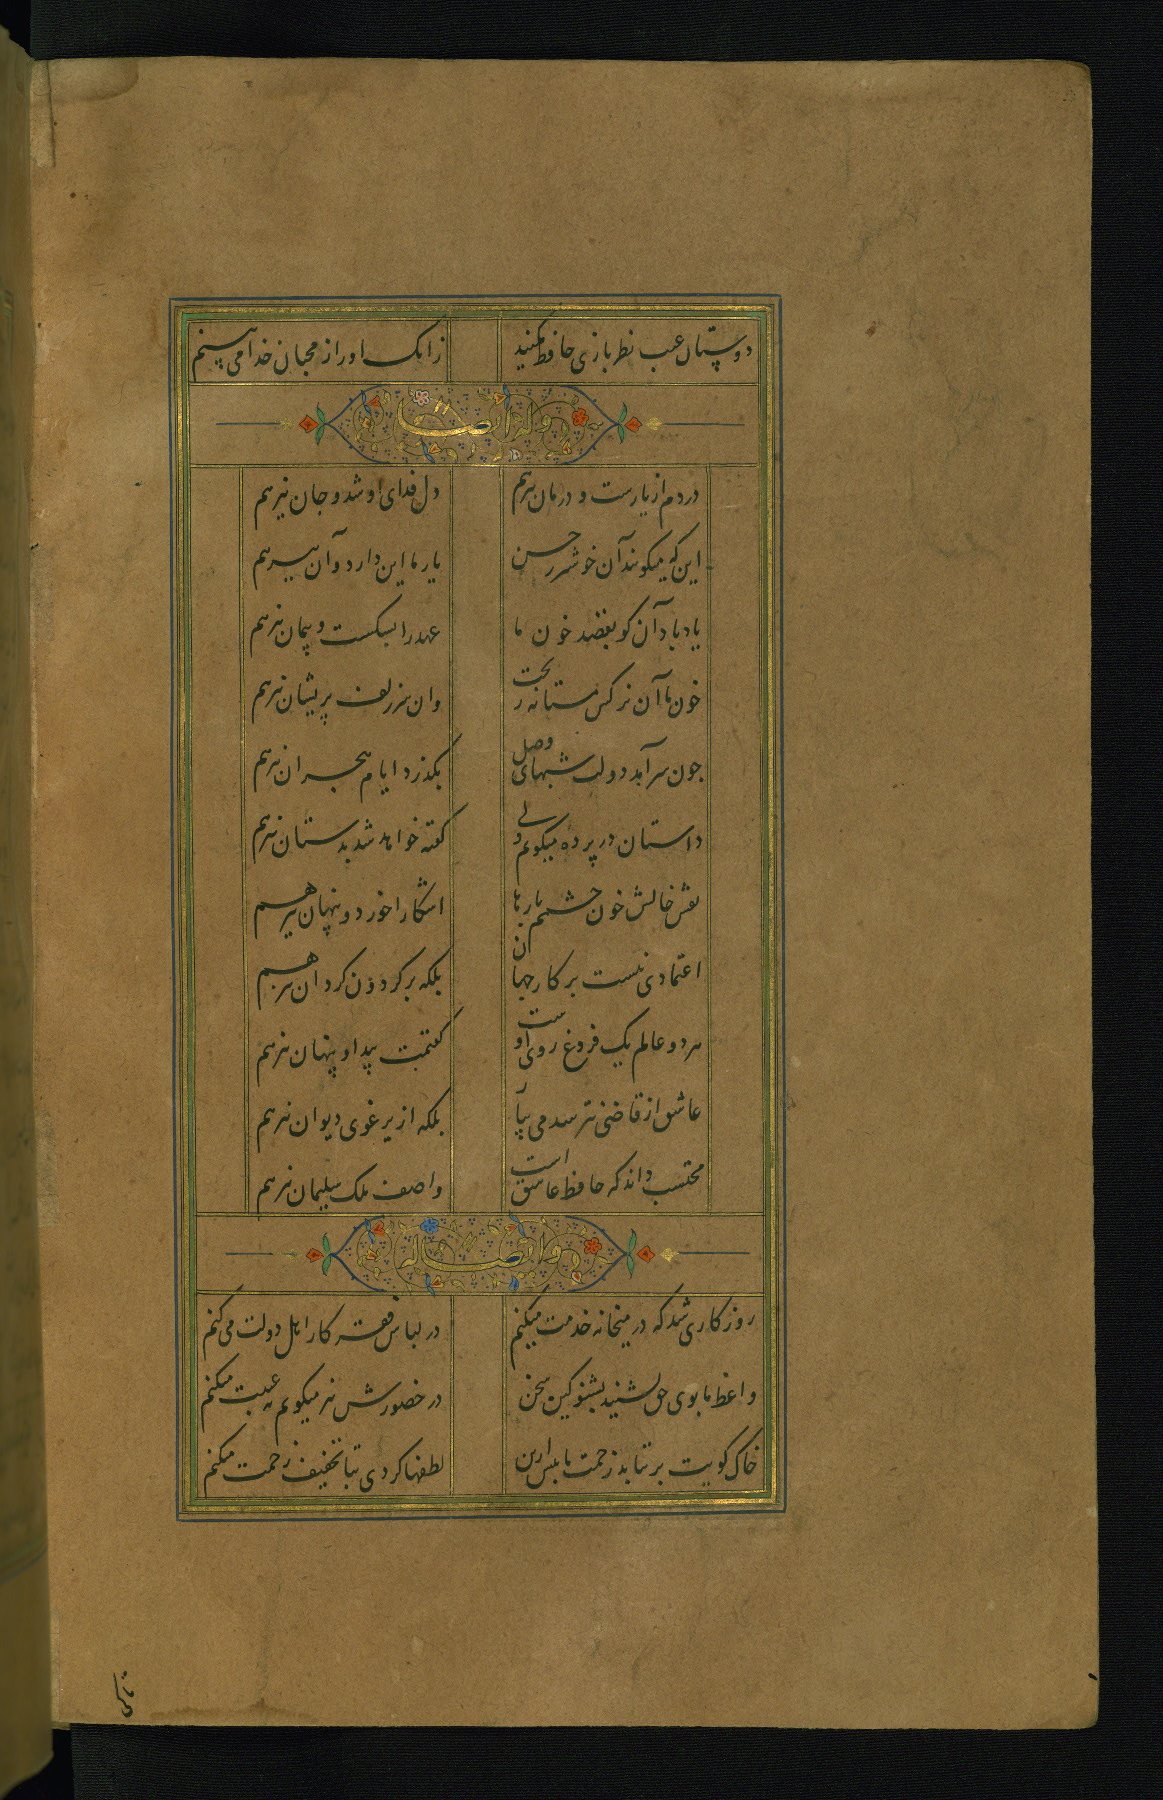 دوستان عیب نظربازی حافظ مکنید زانک او را از محبان خدا می بینم
وله ایضا
دردم از یارست و درمان نیز هم دل فدای او شد و جان نیز هم
این که میکویند آن خوشتر ز حسن یار ما این دارد و آن نیز هم
یاد باد آن کو بقصد خون ما عهد را بشکست و پیمان نیز هم
خون ما آن نرکس مستانه ریخت وان سر زلف پریشان نیز هم
چون سر آمد دولت شبهای وصل بکذرد ایام هجران نیز هم
داستان در پرده میکویم ولی کفته خواهد شد بدستان نیز هم
نقش خالش خون چشمم بارها اشکارا خورد و پنهان نیز هم
اعتمادی نیست بر کار جهان بلکه بر کردون کردان نیز هم
هر دو عالم یک فروغ روی اوست کفتمت پیدا و پنهان نیز هم
عاشق از قاضی نترسد می بیار بلکه از یرغوی دیوان نیز هم
محتسب داند که حافظ عاشق است واصف ملک سلیمان نیز هم
وایضا له
روزکاری شد که در میخانه خدمت میکنم در لباس فقر کار اهل دولت می کنم
واعظ ما بوی حق نشنید بشنو کین سخن در حضورش نیز میکویم نه غیبت میکنم
خاک کویت بر نتابد زحمت ما بیش ازین لطفها کردی بتا تخفیف زحمت میکنم
تا کی